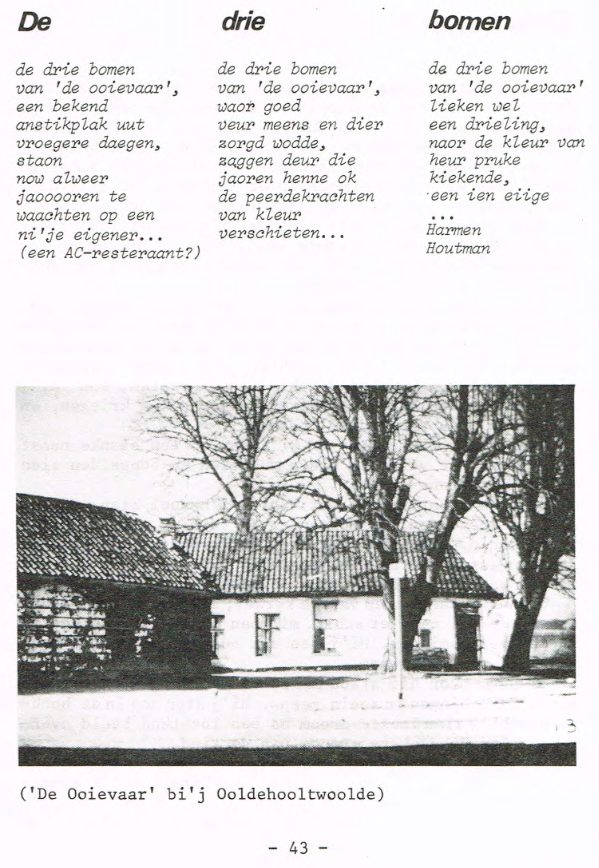 De drie bomen
de drie bomen
van 'de ooievaar',
een bekend
anstikplak uut
vroegere daegen,
staon
now alweer
jaooooren te
waachten op een
ni'je eigener...
(een AC-resteraant?)
de drie bomen
van 'de ooievaar',
waor goed
veur meens en dier
zorgd wodde,
zaggen deur die
jaoren henne ok
de peerdekrachten
van kleur
verschieten...
de drie bomen
van 'de ooievaar'
lieken wel
een drieling,
naor de kleur van
heur pruke
kiekende,
een ien eiige
...
Harmen
Houtman
('De Ooievaar' bi'j Ooldehooltwoolde)
- 43 -